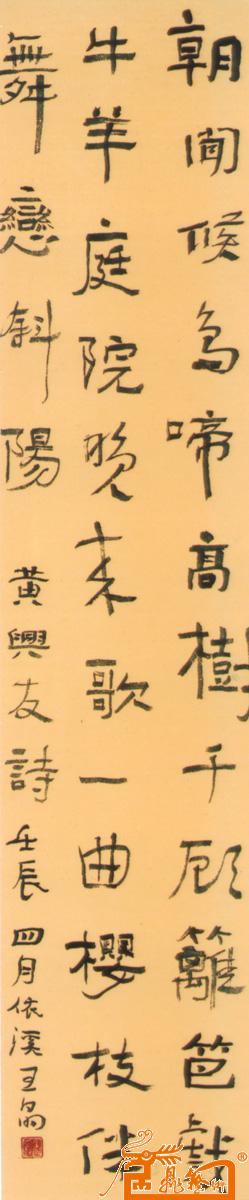 朝聞候鳥啼高樹千顾籬笆戲
牛羊庭院晚来歌一曲櫻枝伴
舞戀斜陽 黄興友詩 壬辰四月依溪王